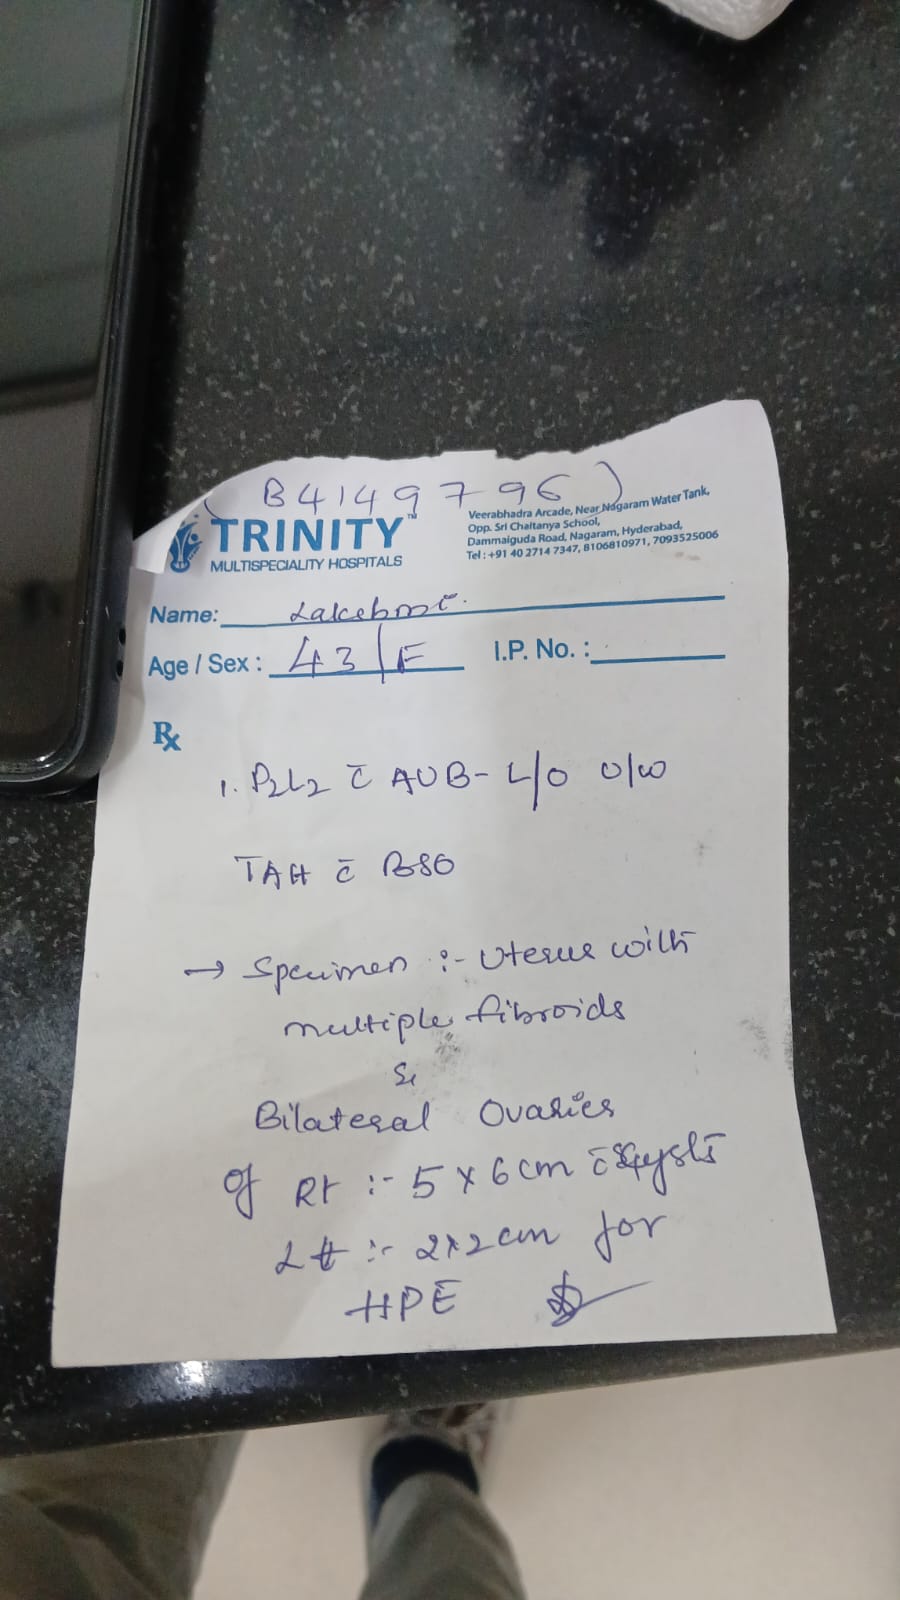 (B4149796)
TRINITY™
MULTISPECIALITY HOSPITALS
Veerabhadra Arcade, Near Nagaram Water Tank,
Opp. Sri Chaitanya School,
Dammaiguda Road, Nagaram, Hyderabad,
Tel : +91 40 2714 7347, 8106810971, 7093525006
Name:
Age / Sex : 43/F
I.P. No. :
Rx
1. P2L2 c̄ AUB-L/O U/W
TAH c̄ BSO
→ Specimen :- Uterus with
multiple fibroids
&
Bilateral Ovaries
of Rt :- 5 x 6 cm c̄
Lt :- 2x2 cm for
HPE